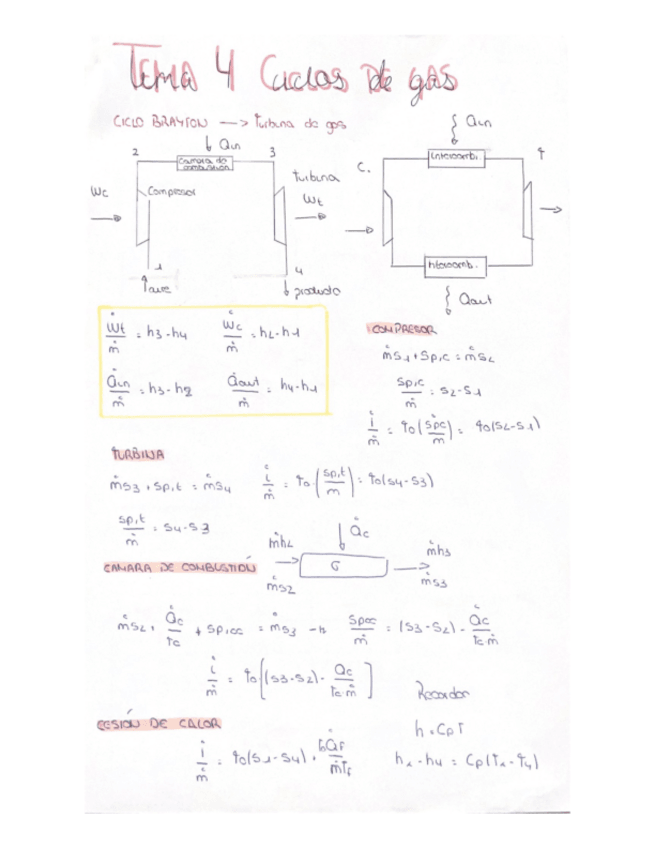 TEMA 4 Ciclos de gas
CICLO BRAYTON —> turbina de gas
Qin
2
3
Camara de combustión
Compresor
Wc
turbina
Wt
1
4
aire
producto
Qin
C.
Intercamb.
Intercamb.
Qout
Ẇt/ṁ = h3-h4
Ẇc/ṁ = h2-h1
Q̇in/ṁ = h3-h2
Q̇out/ṁ = h4-h1
COMPRESOR
ṁs1 + Sp,c = ṁs2
Sp,c/ṁ = s2-s1
i/ṁ = T0(Spc/ṁ) = T0(s2-s1)
TURBINA
ṁs3 + Sp,t = ṁs4
i/ṁ = T0(Sp,t/m) = T0(s4-s3)
Sp,t/ṁ = s4-s3
CAMARA DE COMBUSTIÓN
ṁh2
ṁs2
Q̇c
G
ṁh3
ṁs3
ṁs2 + Q̇c/Tc + Sp,cc = ṁs3 → Spcc/ṁ = (s3-s2) - Q̇c/Tc·ṁ
i/ṁ = T0[(s3-s2) - Qc/Tc·ṁ]
Recordar
h = CpT
CESIÓN DE CALOR
i/ṁ = T0(s1-s4) +
h1-h4 = Cp(T1-T4)